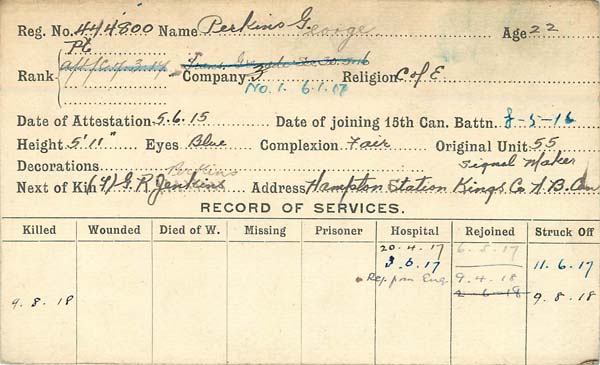 Reg. No. 444800 Name Perkins George Age 22
Pte
Rank Company 3 Religion C of E
No. 1. 6.1.17
Date of Attestation 5.6.15 Date of joining 15th Can. Battn. 8-5-16
Height 5'11" Eyes Blue Complexion Fair Original Unit 55
Decorations Perkins Signal Maker
Next of Kin (4) G. R. Jenkins Address Hampton Station Kings Co N.B. Can
RECORD OF SERVICES.
Killed Wounded Died of W. Missing Prisoner Hospital Rejoined Struck Off
20.4.17 6.5.17
3.6.17 11.6.17
Rep from Eng. 9.4.18
9.8.18 2-6-18 9.8.18